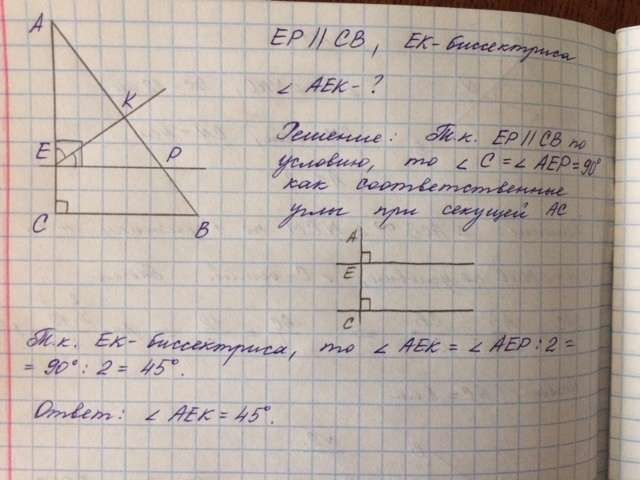 EP || CB, EK - биссектриса
∠ AEK - ?
A
K
E
P
C
B
Решение: Т.к. EP || CB по
условию, то ∠ C = ∠ AEP = 90°
как соответственные
углы при секущей AC
A
E
C
Т.к. EK - биссектриса, то ∠ AEK = ∠ AEP : 2 =
= 90° : 2 = 45°.
Ответ: ∠ AEK = 45°.